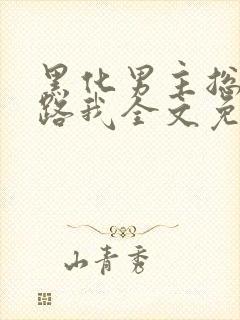 黑化男主攻
路我全文免
山青秀